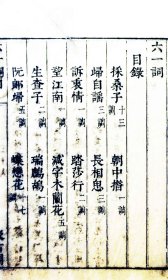 六一詞
目錄
採桑子 十三 朝中措 一調
歸自謠 三調 長相思 三調
訴衷情 一調 踏莎行 二調
望江南 一調 減字木蘭花 五調
生查子 二調 瑞鷓鴣 一調
阮郎歸 五調 蝶戀花